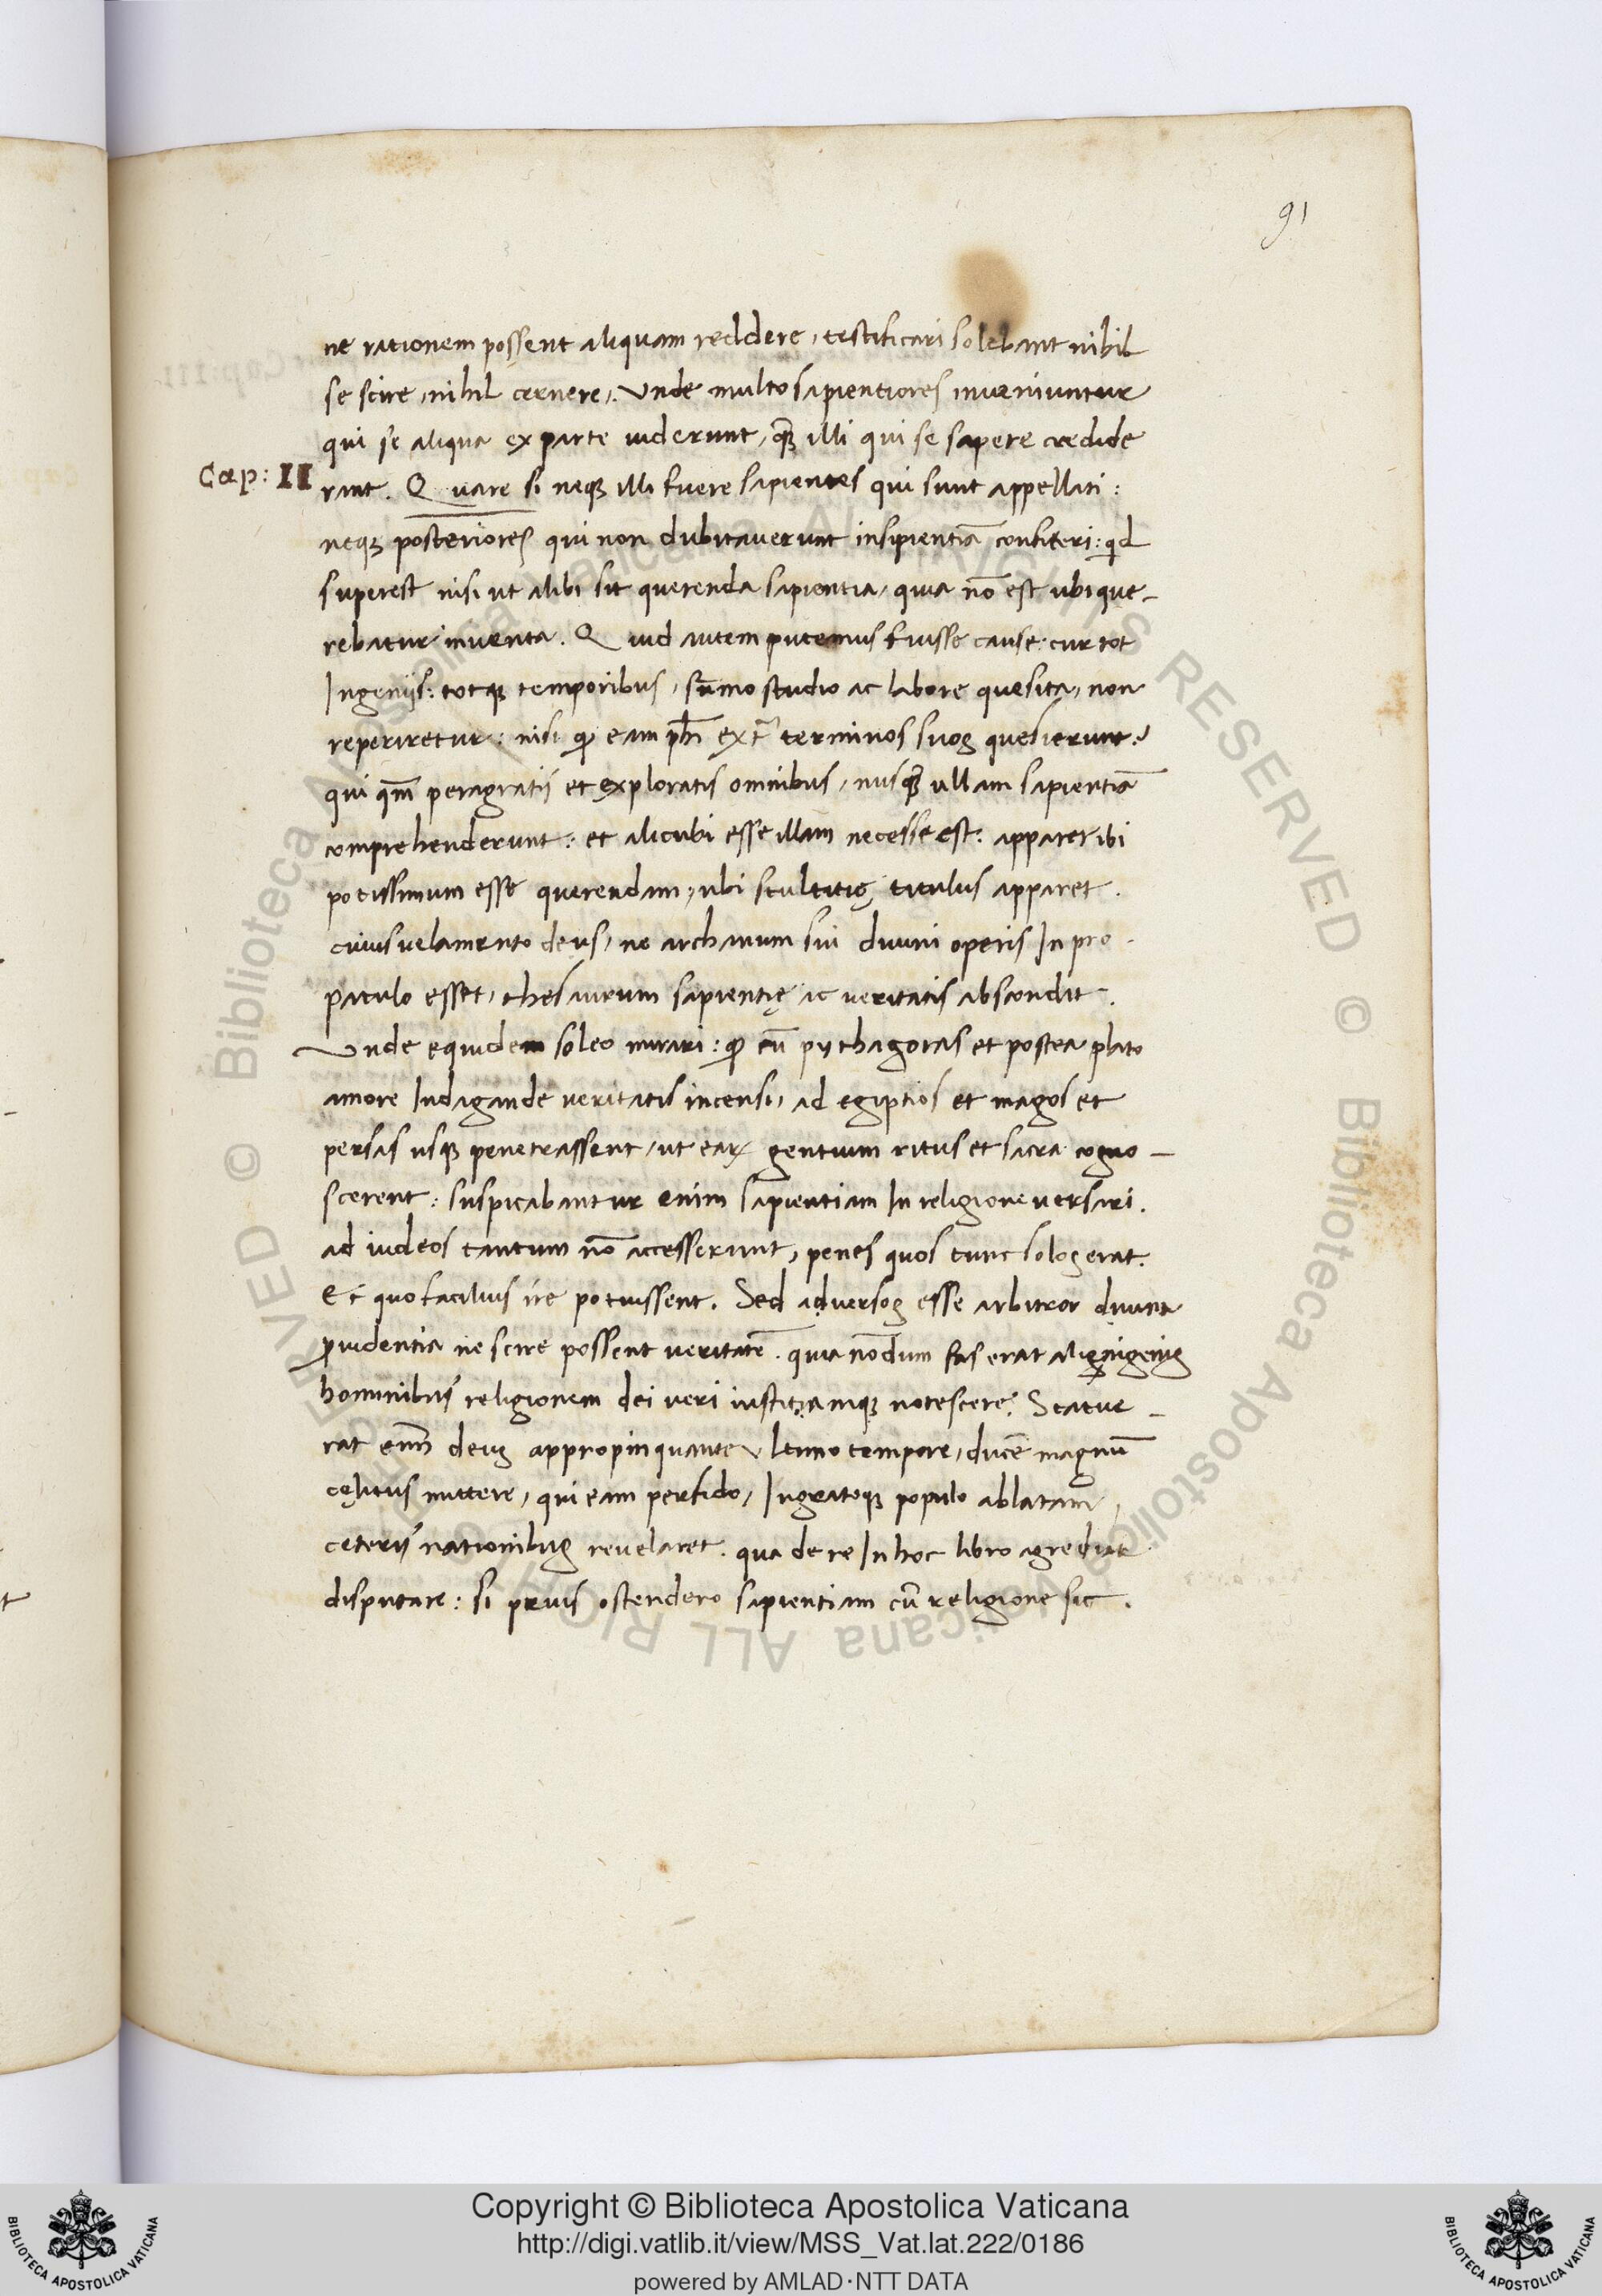 91
ne rationem possent aliquam reddere, testificari solebant nihil
se scire, nihil cernere,. Unde multo sapientiores inueniuntur
qui se aliqua ex parte uiderunt, qȝ illi qui se sapere credide
Cap: II
rant. Quare si neqȝ illi fuere sapientes qui sunt appellati:
neqȝ posteriores qui non dubitauerunt insipientiā confiteri: qd
superest nisi ut alibi sit querenda sapientia, quia nō est ubi que-
rebatur inuenta. Quid autem putemus fuisse cause: cur tot
Ingenijs: totqȝ temporibus, sūmo studio ac labore quesita, non
reperiretur: nisi ꝙ eam ph̄i ext̄ terminos suoꝯ quesierunt?
qui qm̄ peragratij et exploratis omnibus, nusqȝ ullam sapientiā
comprehenderunt: et alicubi esse illam necesse est: apparet ibi
potissimum esse querendam, ubi stultitię titulus apparet.
cuius uelamento deus, ne archanum sui diuini operis In pro-
patulo esset, thesaurum sapientię ac ueritatis abscondit.
Unde equidem soleo mirari: ꝙ cū pythagoras et postea plato
amore Indagande ueritatis incensi, ad egiptios et magos et
persas usqȝ penetrassent, ut eaꝝ gentium ritus et sacra cogno-
scerent: suspicabantur enim sapientiam In religione uersari.
ad iudeos tantum nō accesserunt, penes quos tunc soloꝯ erat.
Et quo facilius ire potuissent. Sed aduersoꝯ esse arbitror diuina
ꝓuidentia ne scire possent ueritatē. quia nōdum fas erat alienigenis
hominibus religionem dei ueri iustitiamqȝ notescere. Statue-
rat enī deuꝯ appropinquante Ultimo tempore, ducē magnū
cęlitus mittere, qui eam perfido, Ingratoqȝ populo ablatam,
ceterij nationibuꝯ reuelaret. qua de re In hoc libro agrediar
disputare: si prius ostendero sapientiam cū religione sic.
Copyright © Biblioteca Apostolica Vaticana
http://digi.vatlib.it/view/MSS_Vat.lat.222/0186
powered by AMLAD·NTT DATA
BIBLIOTECA APOSTOLICA VATICANA
BIBLIOTECA APOSTOLICA VATICANA